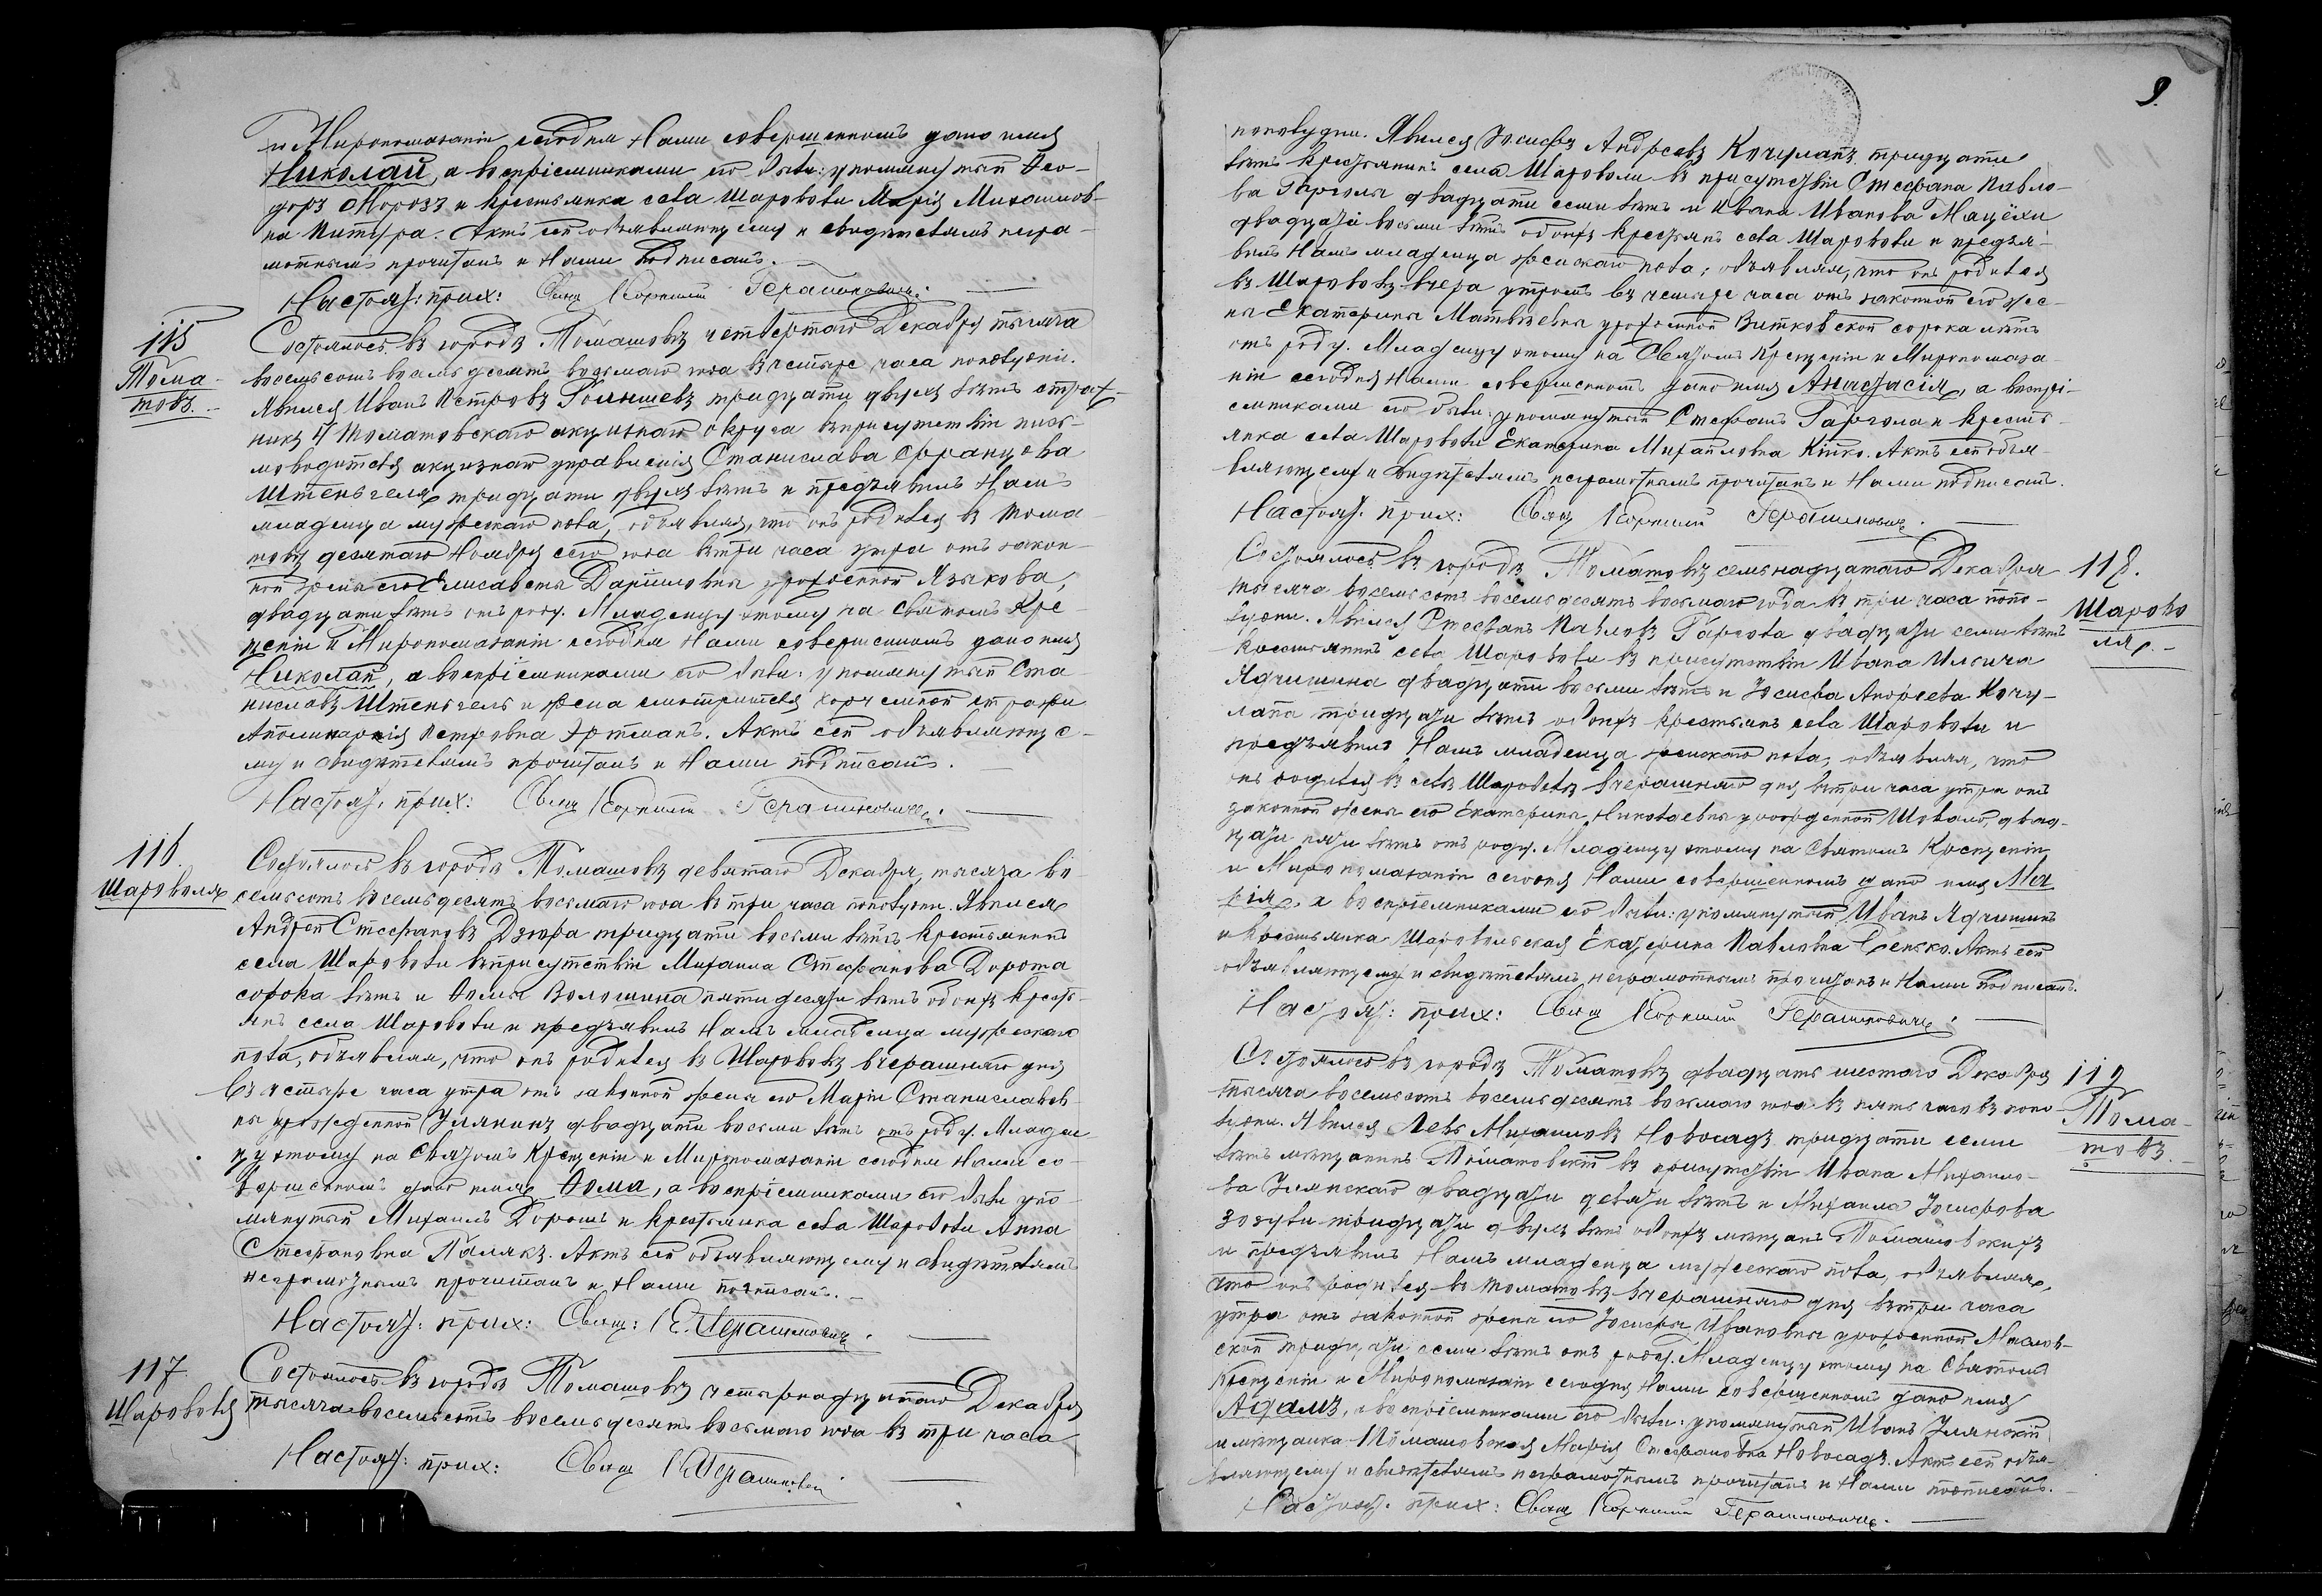 и Миропомазаніи сегодня Нами совершенномъ дано имя
Николай, а воспріемниками его были: упомянутый Ѳео-
доръ Морозъ и крестьянка села Шароволи Марія Михаилов-
на Питура. Актъ сей объявляющему и свидѣтелямъ негра-
мотнымъ прочитанъ и Нами подписанъ.
Настоят: прих: Свящ Корнилий Герашкович.
115
Тома-
шовъ.
Состоялось въ городѣ Томашовѣ четвертаго Декабря тысяча
восемьсотъ восемьдесятъ восьмаго года въ четыре часа пополудни.
Явился Иванъ Петровъ тридцати двухъ лѣтъ страж-
никъ 4 Томашовскаго акцизнаго округа въ присутствіи пись-
моводителя акцизнаго управленія Станислава Францова
Штенгеля тридцати двухъ лѣтъ и предъявилъ Намъ
младенца мужескаго пола, объявляя, что онъ родился въ Тома-
шовѣ десятаго Ноября сего года въ три часа утра отъ закон-
ной жены его Елисаветы Даниловны урожденной Языкова,
двадцати лѣтъ отъ роду. Младенцу этому на Святомъ Кре-
щеніи и Миропомазаніи сегодня Нами совершенномъ дано имя
Николай, а воспріемниками его были: упомянутый Ста-
ниславъ Штенгель и жена смотрителя корчемной стражи
Аполинарія Петровна Эртманъ. Актъ сей объявляюще-
му и свидѣтелямъ прочитанъ и Нами подписанъ.
Настоят. прих: Свящ Корнилий Герашкович.
116.
Шароволя
Состоялось въ городѣ Томашовѣ девятаго Декабря, тысяча во-
семьсотъ восемьдесятъ восьмаго года въ три часа пополудни. Явился
Андрей Стефановъ Дзюра тридцати восьми лѣтъ крестьянинъ
села Шароволи въ присутствіи Михаила Стефанова Дороша
сорока лѣтъ и Ѳомы Волошина пятидесяти лѣтъ обоихъ кресть-
янъ села Шароволи и предъявилъ Намъ младенца мужескаго
пола, объявляя, что онъ родился въ Шароволѣ вчерашняго дня
въ четыре часа утра отъ законной жены его Маріи Станиславов-
ны урожденной Улянинъ двадцати восьми лѣтъ отъ роду. Младен-
цу этому на Святомъ Крещеніи и Миропомазаніи сегодня Нами со-
вершенномъ дано имя Ѳома, а воспріемниками его были упо-
мянутый Михаилъ Дорошъ и крестьянка села Шароволи Анна
Стефановна Палякъ. Актъ сей объявляющему и свидѣтелямъ
неграмотнымъ прочитанъ и Нами подписанъ.
Настоят: прих: Свящ: К. Герашкович.
117
Шароволя
Состоялось въ городѣ Томашовѣ четырнадцатаго Декабря
тысяча восемьсотъ восемьдесятъ восьмаго года въ три часа
Настоят: прих: Свящ К. Герашкович
9.
пополудни. Явился Іосифъ Андреевъ Кочулапъ тридцати
лѣтъ крестьянинъ села Шароволи въ присутствіи Стефана Павло-
ва Гарголы двадцати семи лѣтъ и Ивана Иванова Мацёхи
двадцати восьми лѣтъ обоихъ крестьянъ села Шароволи и предъя-
вилъ Намъ младенца женскаго пола; объявляя, что онъ родился
въ Шароволѣ вчера утромъ въ четыре часа отъ законной его же-
ны Екатерины Матвѣевны урожденной Витковской сорока лѣтъ
отъ роду. Младенцу этому на Святомъ Крещеніи и Миропомаза-
ніи сегодня Нами совершенномъ дано имя Анастасія, а воспрі-
емниками его были: упомянутый Стефанъ Гаргола и кресть-
янка села Шароволи Екатерина Михайловна Кійко. Актъ сей объя-
вляющему и свидѣтелямъ неграмотнымъ прочитанъ и Нами подписанъ.
Настоят. прих: Свящ Корнилий Герашкович.
118.
Шарово
ля.
Состоялось въ городѣ Томашовѣ семьнадцатаго Декабря
тысяча восемьсотъ восемьдесятъ восьмаго года въ три часа попо-
лудни. Явился Стефанъ Павловъ Гаргола двадцати семи лѣтъ
крестьянинъ села Шароволи въ присутствіи Ивана Ильича
Ядчишина двадцати восьми лѣтъ и Іосифа Андреева Кочу-
лапа тридцати лѣтъ обоихъ крестьянъ села Шароволи и
предъявилъ Намъ младенца женскаго пола, объявляя, что
онъ родился въ селѣ Шароволѣ вчерашняго дня въ три часа утра отъ
законной жены его Екатерины Николаевны урожденной Шовало, двад-
цати пяти лѣтъ отъ роду. Младенцу этому на Святомъ Крещеніи
и Миропомазаніи сегодня Нами совершенномъ дано имя Ма
рія, а воспріемниками его были: упомянутый Иванъ Ядчишинъ
и крестьянка Шаровольская Екатерина Павловна Сенько. Актъ сей
объявляющему и свидѣтелямъ неграмотнымъ прочитанъ и Нами подписанъ.
Настоят: прих: Свящ Корнилий Герашкович.
119
Тома-
шовъ.
Состоялось въ городѣ Томашовѣ двадцать шестаго Декабря
тысяча восемьсотъ восемьдесятъ восьмаго года въ пять часовъ попо-
лудни. Явился Левъ Михаиловъ Новосадъ тридцати семи
лѣтъ мѣщанинъ Томашовскій въ присутствіи Ивана Михаило-
ва Улянскаго двадцати девяти лѣтъ и Михаила Іосифова
Зозули тридцати двухъ лѣтъ обоихъ мѣщанъ Томашовскихъ
и предъявилъ Намъ младенца мужескаго пола, объявляя,
что онъ родился въ Томашовѣ вчерашняго дня въ три часа
утра отъ законной жены его Іосифы Ивановны урожденной Маслов-
ской тридцати семи лѣтъ отъ роду. Младенцу этому на Святомъ
Крещеніи и Миропомазаніи сегодня Нами совершенномъ дано имя
Адамъ, а воспріемниками его были: упомянутый Иванъ Улянскій
и мѣщанка Томашовская Марія Стефановна Новосадъ. Актъ сей объя-
вляющему и свидѣтелямъ неграмотнымъ прочитанъ и Нами подписанъ.
Настоят. прих: Свящ Корнилий Герашкович.